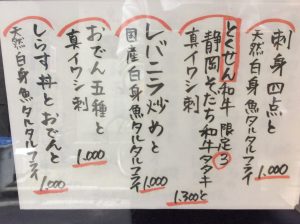 刺身四点と
天然白身魚タルタルフライ
1.000
とくせん和牛 限定3
静岡そだち和牛タタキ
真イワシ刺
1.300と
レバニラ炒めと
国産白身魚タルタルフライ
1.000
おでん五種と
真イワシ刺
1.000
しらす丼とおでんと
天然白身魚タルタルフライ
1.000